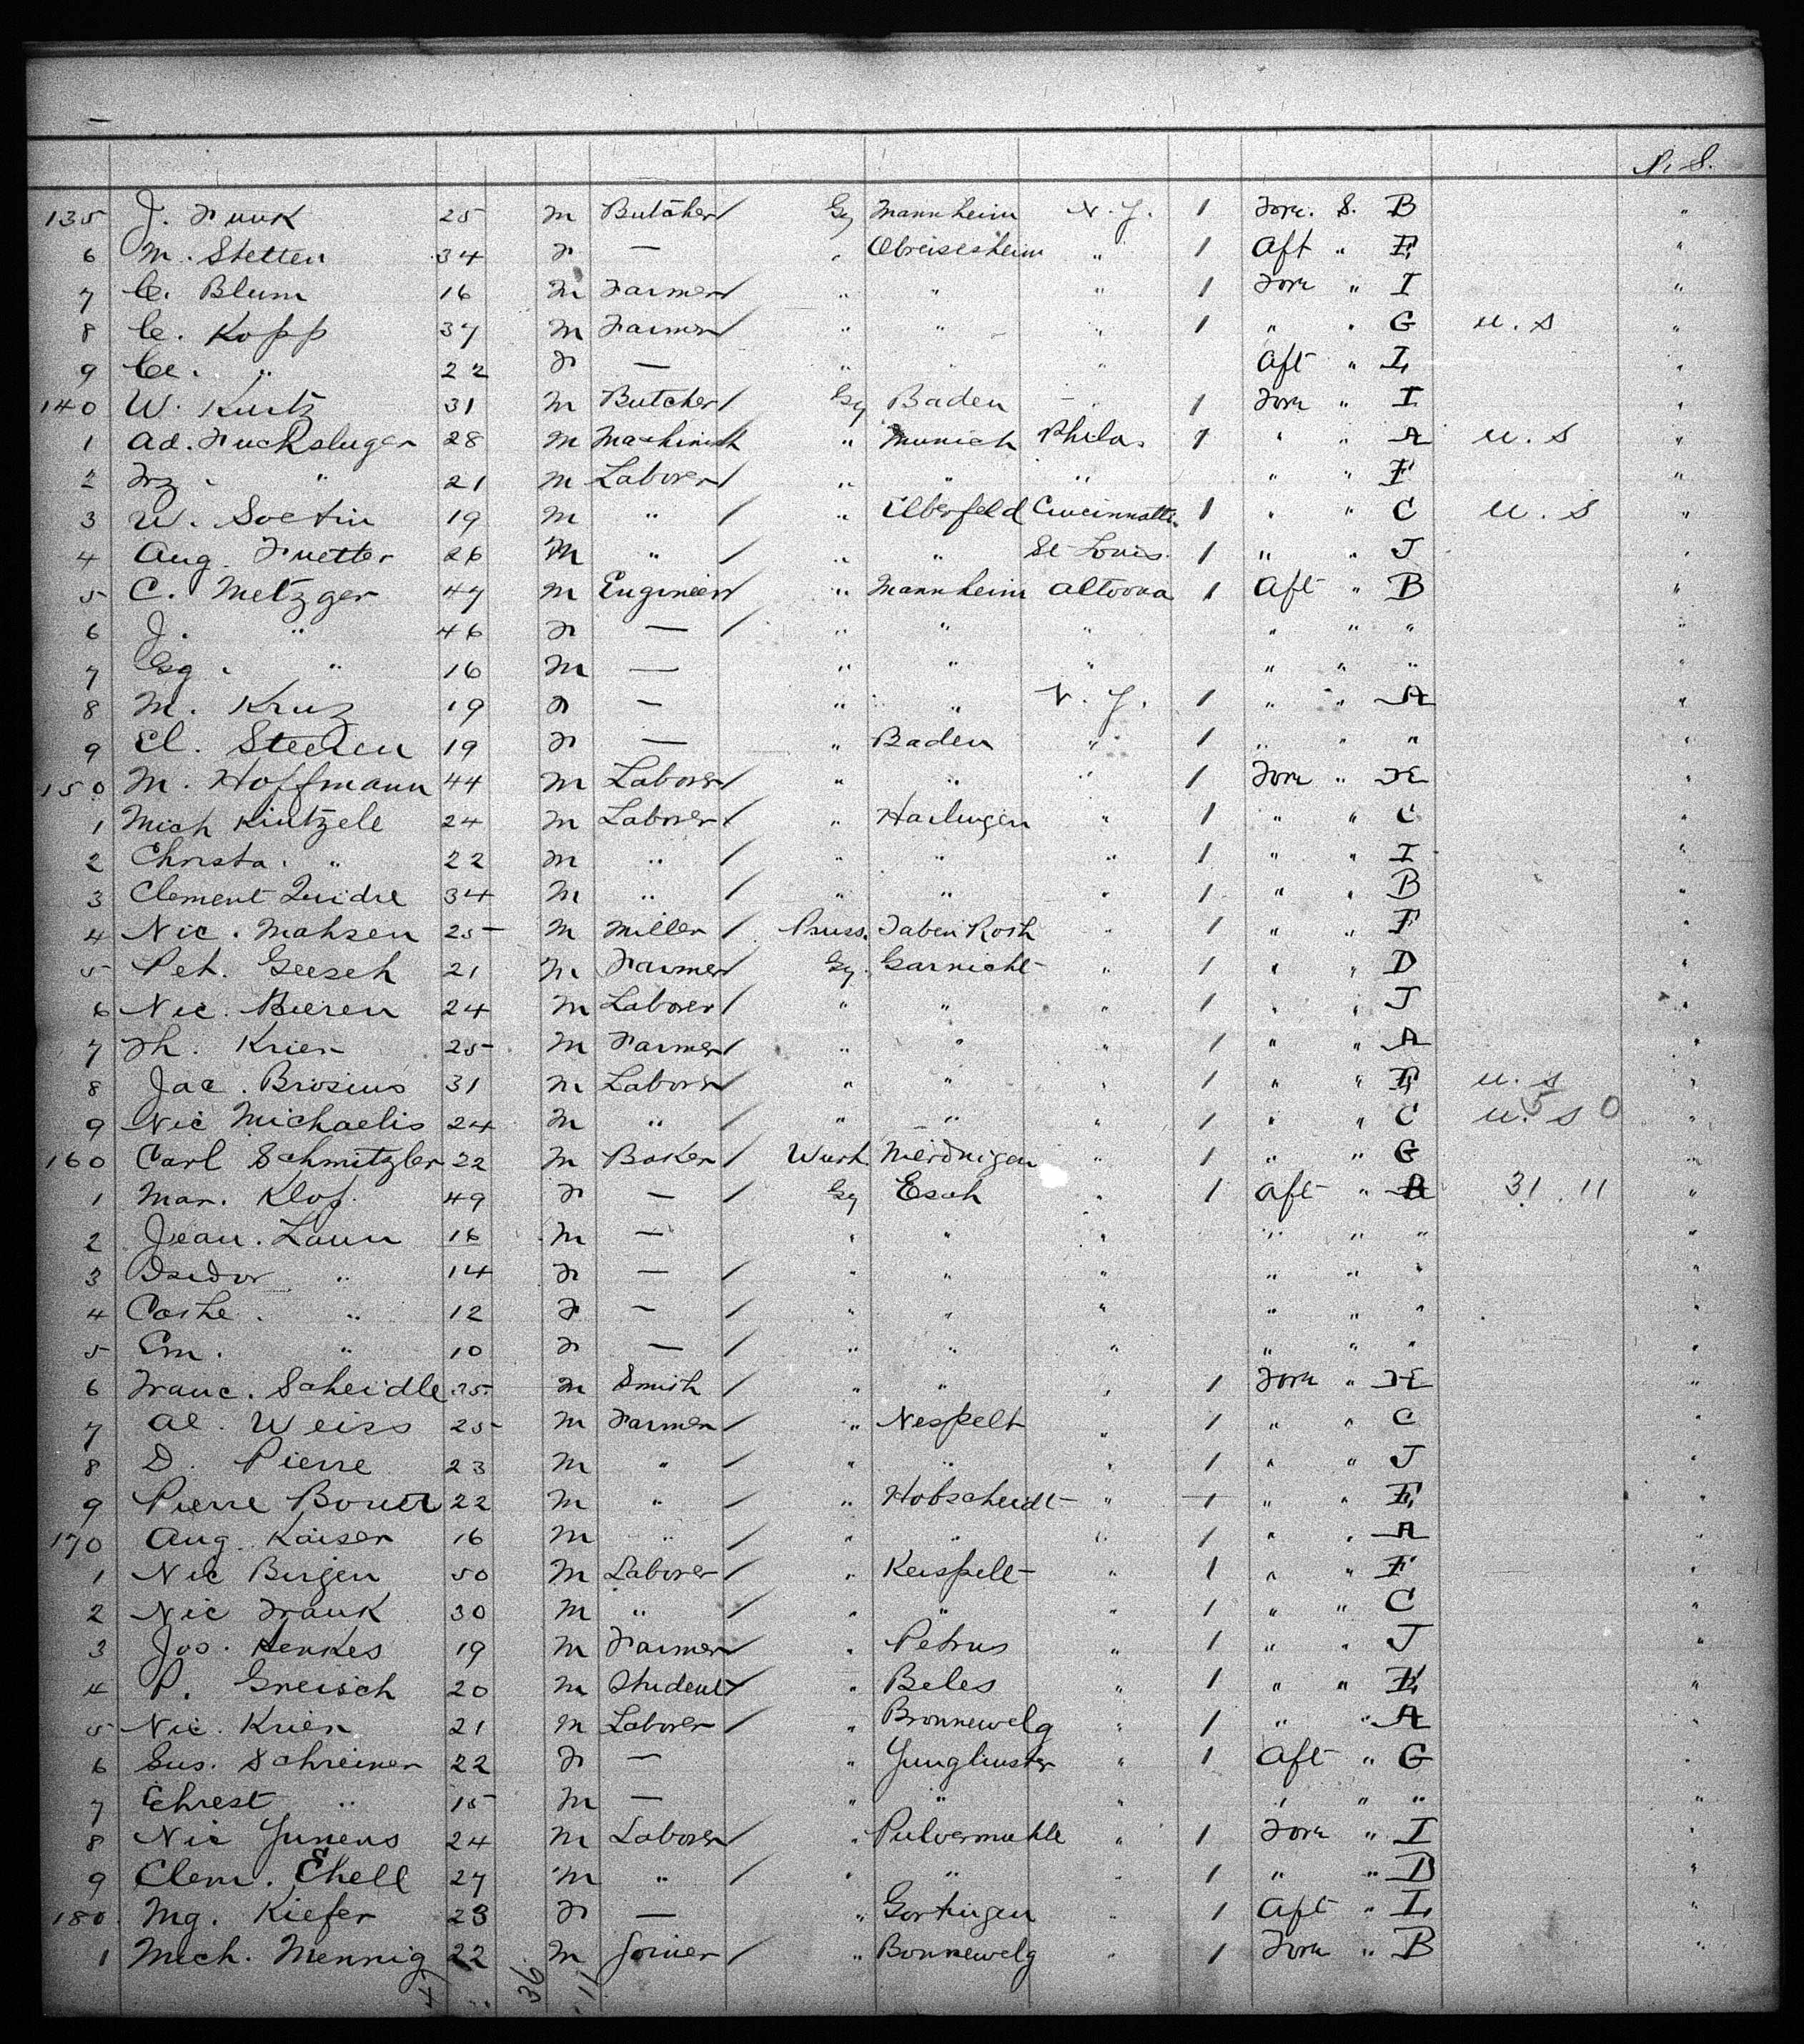 P. S.
135 J. Funk 25 m Butcher / Gy Mannheim N. Y. 1 Forw. S. B "
6 M. Stetten 34 F — " Obreisesheim " 1 Aft " E "
7 C. Blum 16 m Farmer / " " " 1 Forw " I "
8 C. Kopp 37 m Farmer / " " " 1 " " G U. S "
9 Cl. " 22 F — " " " Aft " L "
140 W. Kurtz 31 m Butcher / Gy Baden " 1 Forw " I "
1 Ad. Fucksluger 28 m Machinist " Munich Phila. 1 " " A U. S "
2 Frz. " 21 m Laborer / " " " " " F "
3 W. Soetin 19 m " / " Elberfeld Cincinnatti 1 " " C U. S "
4 Aug. Fuetter 26 m " / " " St Louis. 1 " " J "
5 C. Metzger 47 m Engineer / " Mannheim Altoona 1 Aft " B "
6 J. " 46 F — / " " " " " " "
7 Gg. " 16 m — " " " " " " "
8 M. Kruz 19 F — " " N. Y. 1 " " A "
9 El. 19 F — " Baden " 1 " " " "
150 M. Hoffmann 44 m Laborer / " " " 1 Forw " H "
1 Mich Kintzele 24 m Laborer / " Hailingen " 1 " " C "
2 Christa. " 22 m " / " " " 1 " " I "
3 Clement 34 m " / " " " 1 " " B "
4 Nic. Mahsen 25 m Miller / Pruss. Taben Roth " 1 " " F "
5 Pet. Geesch 21 m Farmer / Gy. Garnicht " 1 " " D "
6 Nic. Bieren 24 m Laborer / " " " 1 " " J "
7 Th. Krier 25 m Farmer / " " " 1 " " A "
8 Jac. Brosius 31 m Laborer / " " " 1 " " E U. S "
9 Nic Michaelis 24 m " / " " " 1 " " C U. S "
160 Carl Schmitzler 22 m Baker / Wurt. Merdnigen " 1 " " G "
1 Mar. Klop. 49 F — / Gy Esch " 1 Aft " 31. 11 "
2 Jean. Laun 16 m — " " " " " " "
3 Isidor " 14 F — / " " " " " " "
4 " 12 F — / " " " " " " "
5 Em. " 10 F — / " " " " " " "
6 Franc. Scheidle 25 m Smith / " " " 1 Forw " H "
7 Al. Weiss 25 m Farmer / " Nospelt " 1 " " C "
8 D. Pierre 23 m " / " " " 1 " " J "
9 Pierre 22 m " / " Hobscheidt " 1 " " E "
170 Aug. Kaiser 16 m " / " " " 1 " " A "
1 Nic Birgen 50 m Laborer / " Keispelt " 1 " " F "
2 Nic Frank 30 m " / " " " 1 " " C "
3 Jos. Henkes 19 m Farmer / " Petrus " 1 " " J "
4 P. Greisch 20 m Student / " Beles " 1 " " E "
5 Nic. Krier 21 m Laborer / " Bronnewelg " 1 " " A "
6 Sus. Schreiner 22 F — " Junglinster " 1 Aft " G "
7 Ehrest " 15 m — " " " " " " "
8 Nic Junens 24 m Laborer / " Pulvermuhle " 1 Forw " I "
9 Clem. Ehell 27 m " / " " " 1 " " D "
180 Mg. Kiefer 23 F — " Gortingen " 1 Aft " L "
1 Mich. Mennig 22 m Joiner / " Bonnewelg " 1 Forw " B "
36 11